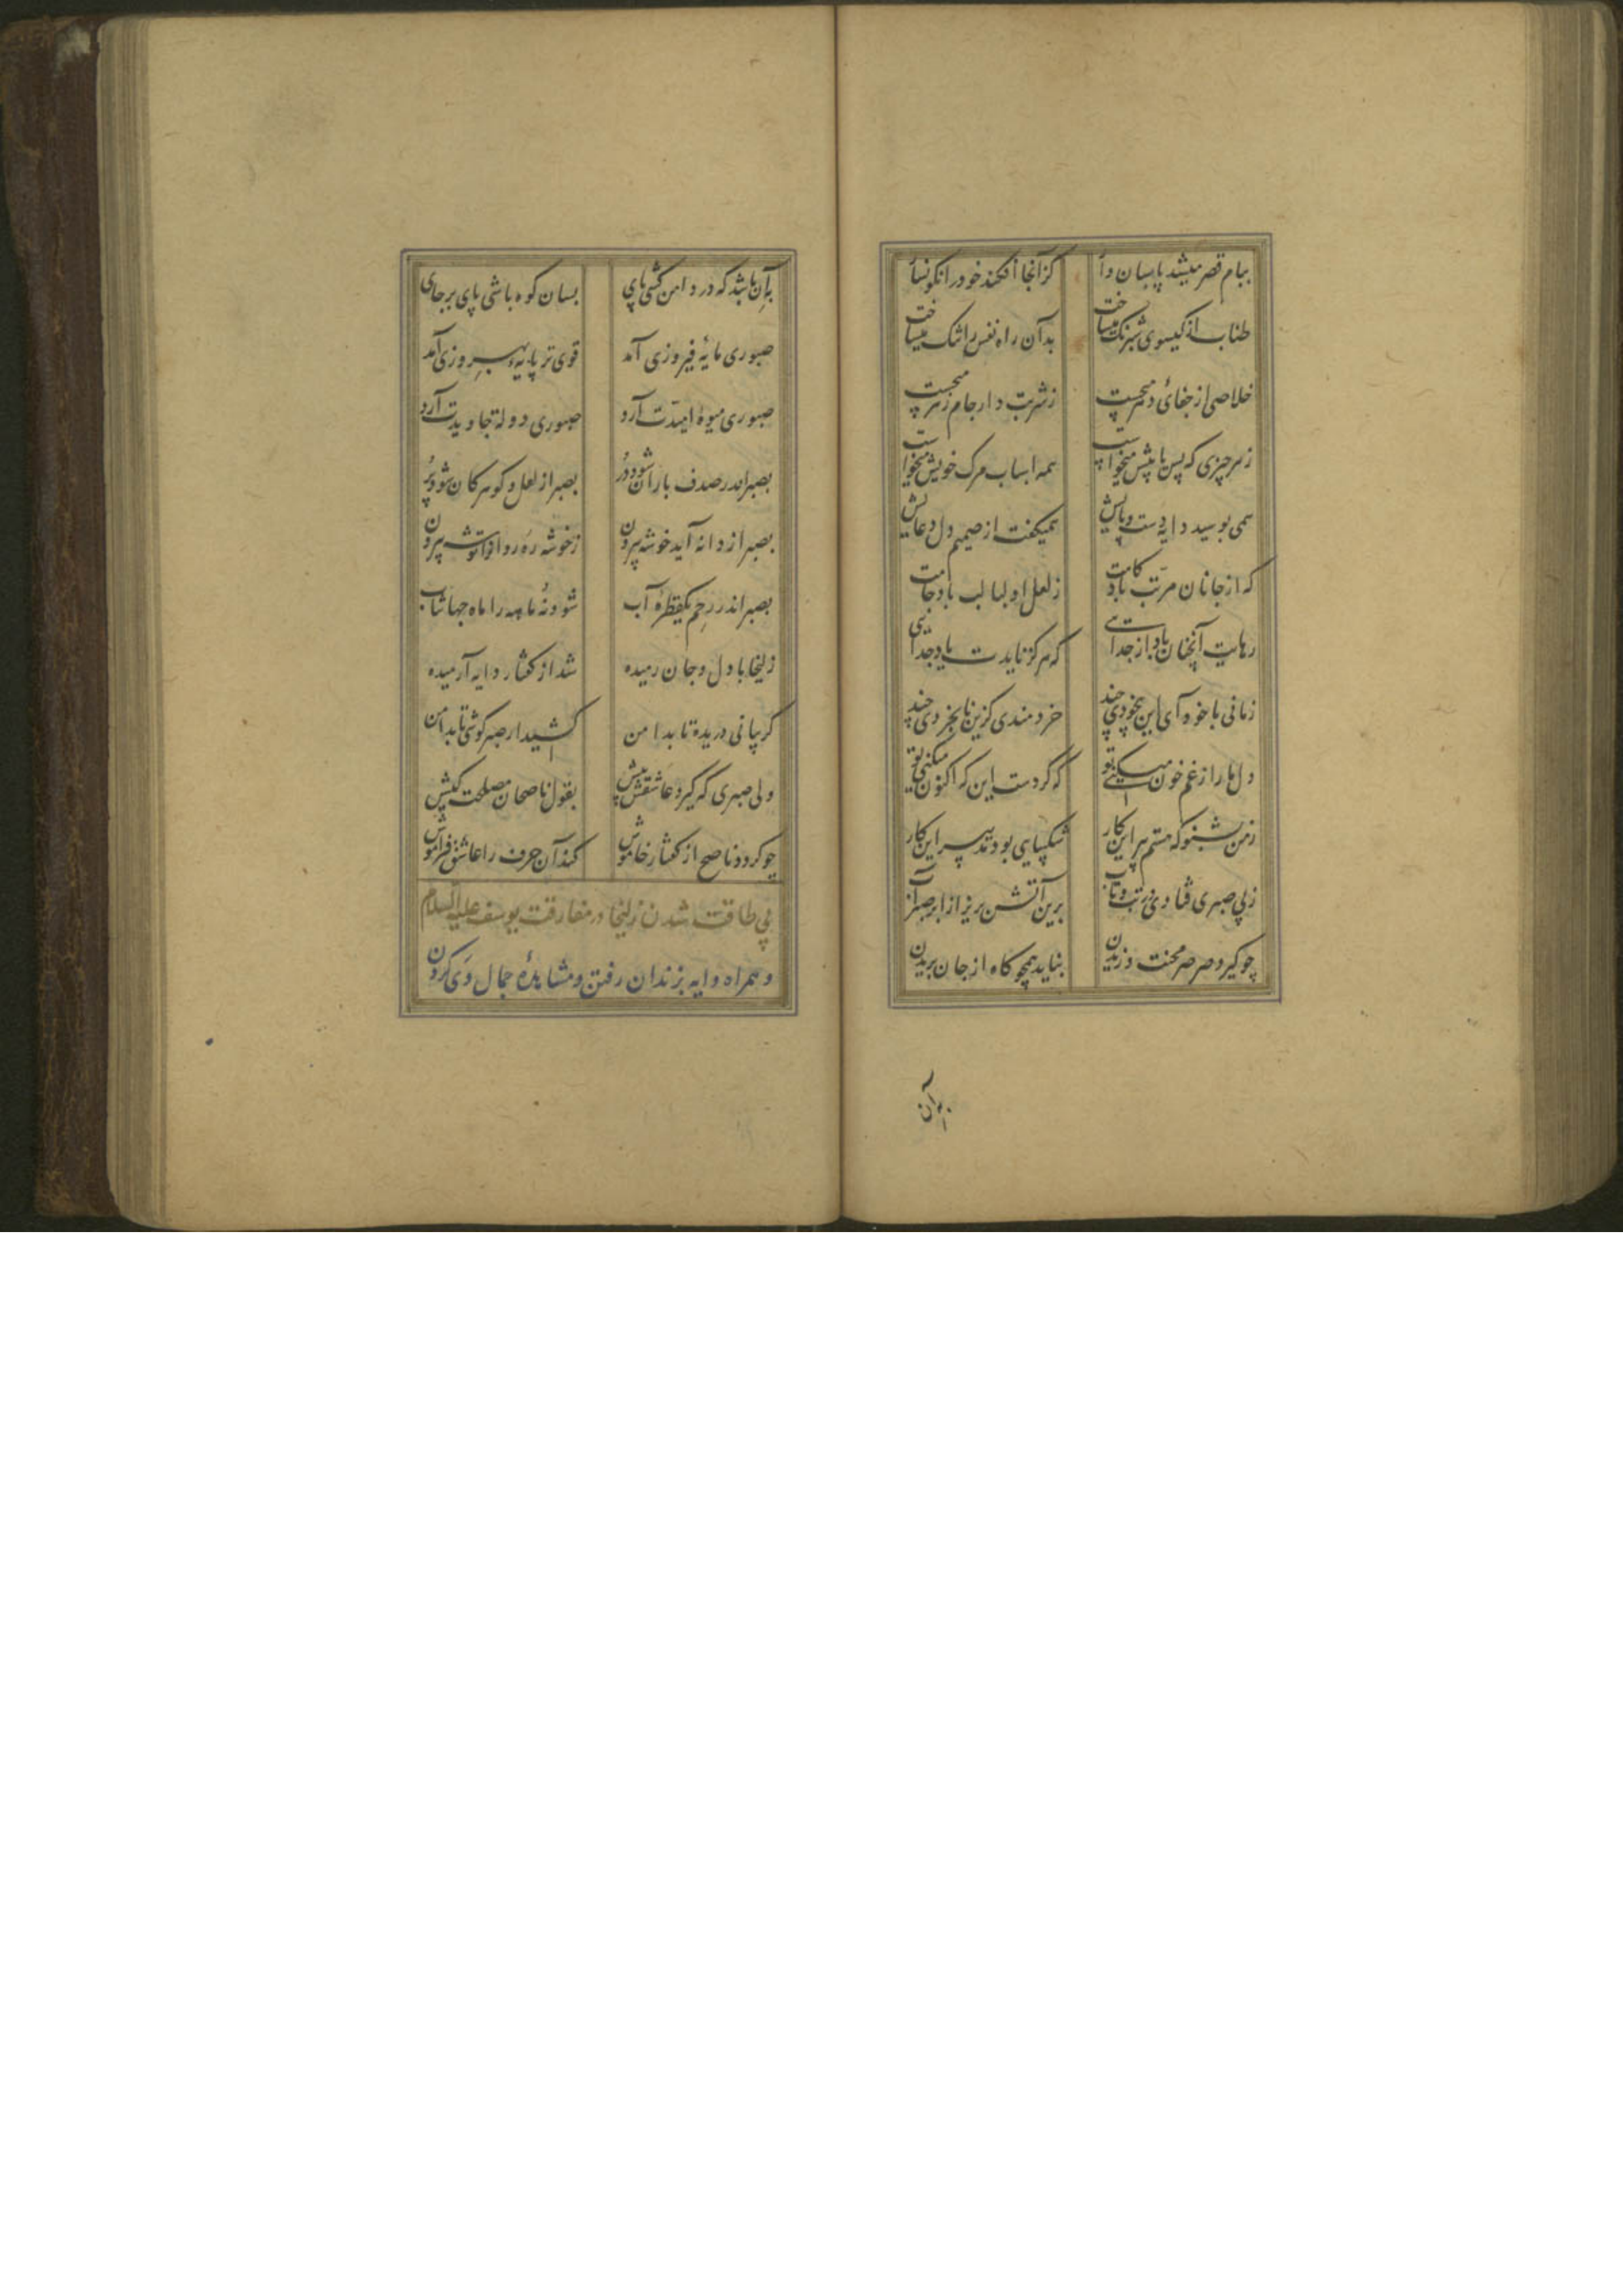 ببام قصر میشد پاسبان وا کز آنجا افکند خود را نکونسا
طناب از کیسوی شبرنک میساخت بدآن راه نفس را تنک میساخت
خلاصی از جفای دهر میجست ز شربت دار جام زهر میجست
ز هر چیزی که پس یا پیش میخواست همه اسباب مرک خویش میخواست
همی بوسید دایه دست و پایش همیکفت از صمیم دل دعایش
که از جانان مرتب باد کامت ز لعل او لبالب باد جامت
رهاییت آنچنان باد از جدایی که هرکز ناید ت یاد جدایی
زمانی با خود آی این بیخودی چند خردمندی کزین نابخردی چند
دل ما را ز غم خون میکنی تو که کردست این که اکنون میکنی تو
ز من بشنو که هستم پیر این کار شکیبایی بود تدبیر این کار
ز بی صبری فتادی در تب و تاب برین آتش بریز از ابر صبر آب
چو کیرد صرصر محنت وزیدن نباید همچو کاه از جان بریدن
به آن
به آن باشد که در دامن کشی پای بسان کوه باشی پای برجای
صبوری مایهٔ فیروزی آمد قوی تر پایهٔ بهروزی آمد
صبوری میوهٔ امیدت آرد صبوری دولت جاویدت آرد
بصبر اندر صدف باران شود در بصبر از لعل و کوهر کان شود پر
بصبر از دانه آید خوشه بیرون ز خوشه رهروان را توشه بیرون
بصبر اندر رحم یکقطره آب شود نه ماهه را ماه جهانتاب
زلیخا با دل و جان رمیده شد از کفتار دایه آرمیده
کریبانی دریده تا بدامن کشید از صبر کوشی تا بدامن
ولی صبری که کیرد عاشقش پیش بقول ناصحان مصلحت کیش
چو کردد ناصح از کفتار خاموش کند آن حرف را عاشق فراموش
بی طاقت شدن زلیخا در مفارقت یوسف علیه السلام
و همراه دایه بزندان رفتن و مشاهدهٔ جمال وی کردن